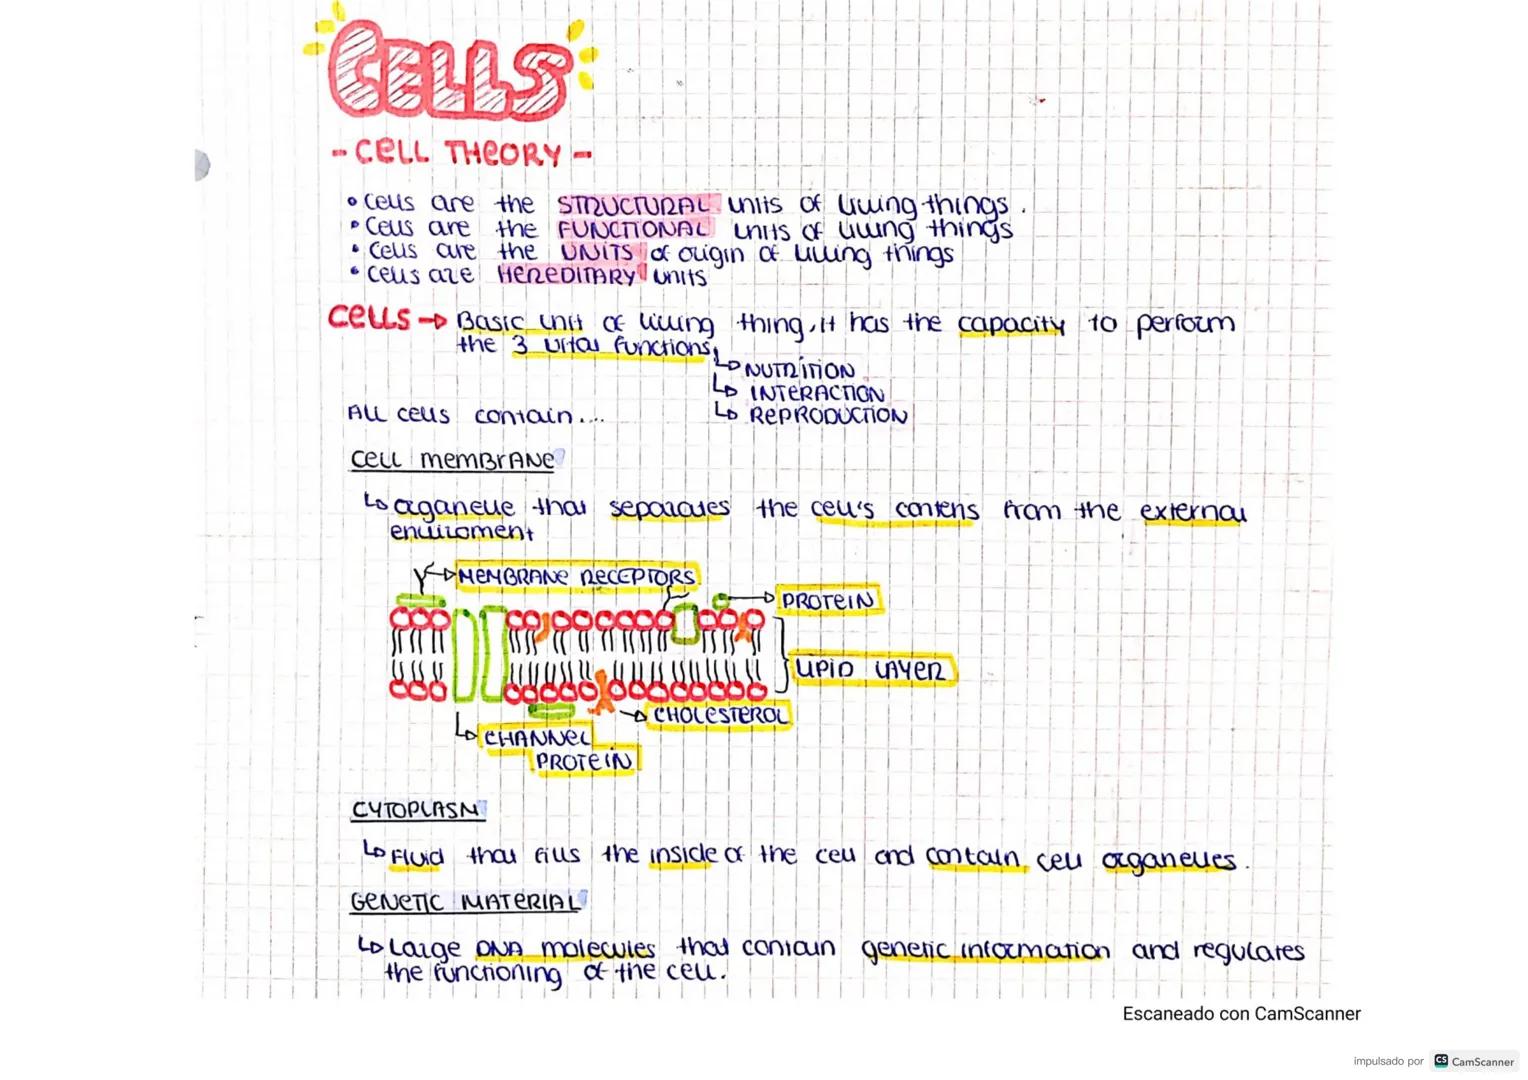 CELLS
- CELL THEORY -
• Cells are the STRUCTURAL units of living things.
• Cells are the FUNCTIONAL units of living things
• Cells are the UNITS of origin of living things
• Cells are HEREDITARY units
CELLS → Basic unit of living thing, it has the capacity to perform
the 3 vital functions,
↳ NUTRITION
↳ INTERACTION
↳ REPRODUCTION
All cells contain....
CELL MEMBRANE
↳ organelle that separates the cell's contens from the external
enviroment
MEMBRANE RECEPTORS
PROTEIN
LIPID LAYER
CHOLESTEROL
CHANNEL
PROTEIN
CYTOPLASM
↳ Fluid that fills the inside of the cell and contain cell organelles.
GENETIC MATERIAL
↳ Large DNA molecules that contain genetic information and regulates
the functioning of the cell.
Escaneado con CamScanner
impulsado por CS CamScanner